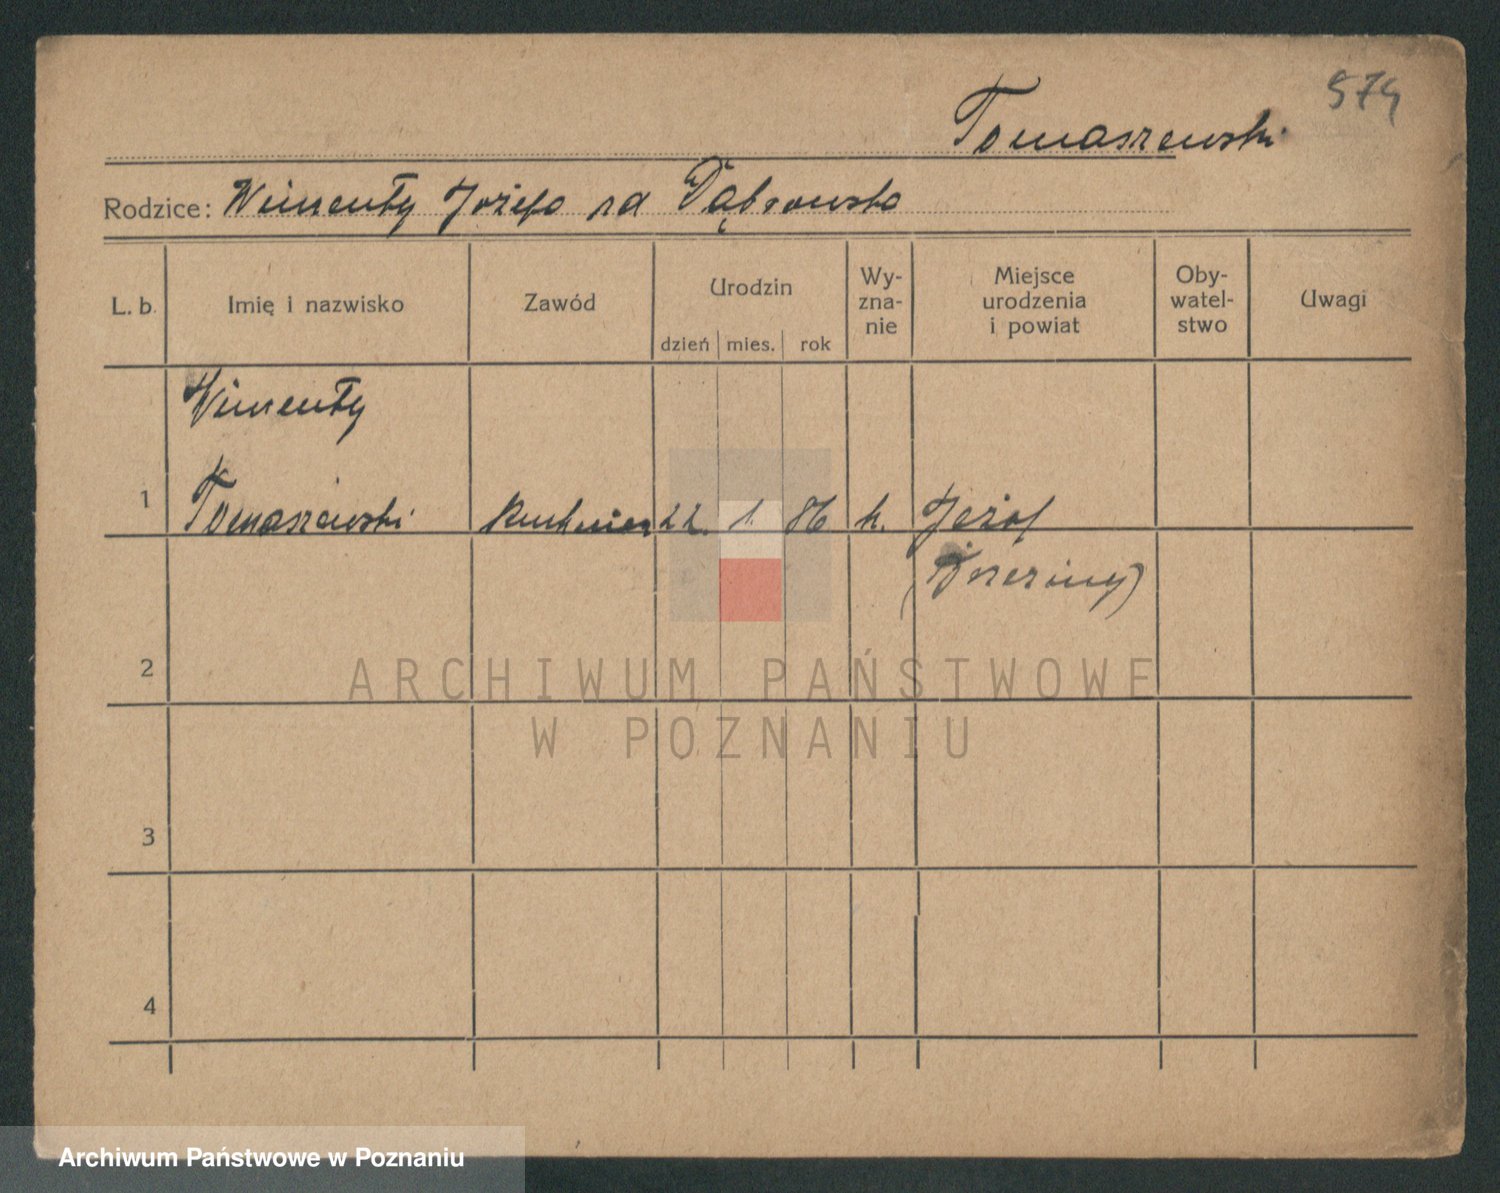 574
Tomaszewski
Rodzice: Wincenty Józefa zd Dąbrowska
L. b. Imię i nazwisko Zawód Urodzin Wy-
zna-
nie Miejsce
urodzenia
i powiat Oby-
watel-
stwo Uwagi
dzień mies. rok
Wincenty
1 Tomaszewski 22. 1. 86 k. Józef
2
3
4
ARCHIWUM PAŃSTWOWE
W POZNANIU
Archiwum Państwowe w Poznaniu